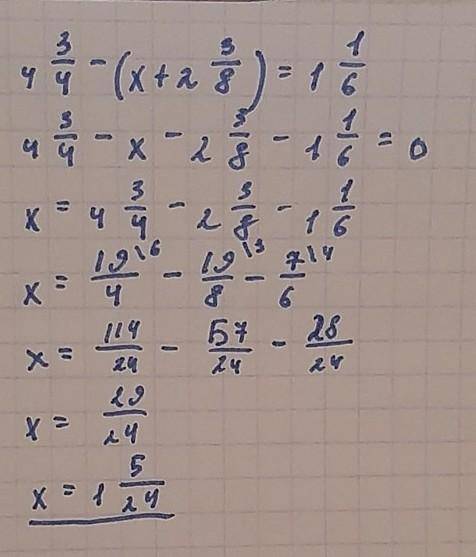 4 3/4 - (x + 2 3/8) = 1 1/6
4 3/4 - x - 2 3/8 - 1 1/6 = 0
x = 4 3/4 - 2 3/8 - 1 1/6
x = 19\6/4 - 19\3/8 - 7\4/6
x = 114/24 - 57/24 - 28/24
x = 29/24
x = 1 5/24